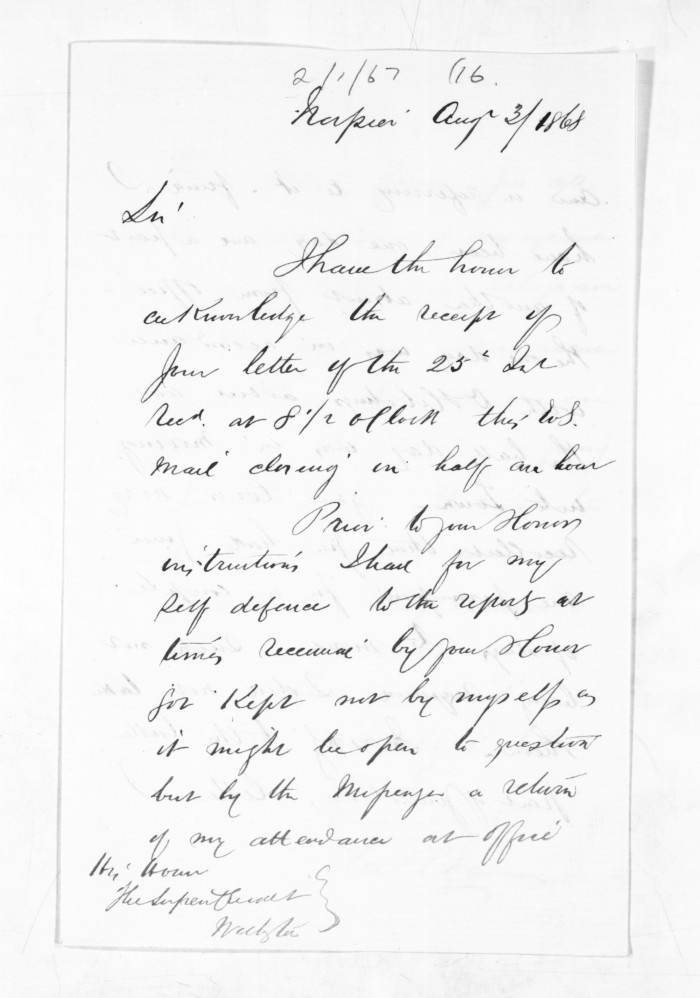 2/1/67 (16.
Napier Augt 3/1868
Sir
I have the honor to
acknowledge the receipt of
your letter of the 25th Inst
Recd. at 8 1/2 oClock this
mail closing in half an hour
Prior to your Honor
instructions I have for my
self defence to the reports at
times received by your Honor
got Kept not by myself as
it might be open to question
but by the Messenger a return
of my attendance at office
His Honor
The Superintendent